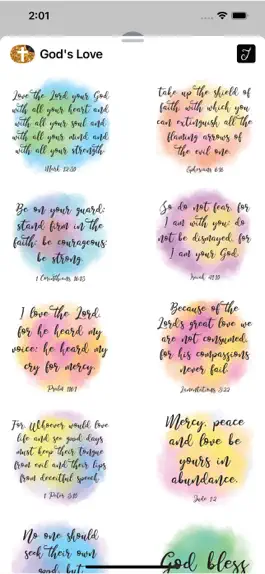 2:01
God's Love
Love the Lord your God
with all your heart and
with all your soul and
with all your mind and
with all your strength.
Mark 12:30
take up the shield of
faith, with which you
can extinguish all the
flaming arrows of
the evil one.
Ephesians 6:16
Be on your guard;
stand firm in the
faith; be courageous;
be strong.
1 Corinthians 16:13
So do not fear, for
I am with you; do
not be dismayed, for
I am your God.
Isaiah 41:10
I love the Lord,
for he heard my
voice; he heard my
cry for mercy.
Psalm 116:1
Because of the
Lord's great love we
are not consumed,
for his compassions
never fail.
Lamentations 3:22
For, Whoever would love
life and see good days
must keep their tongue
from evil and their lips
from deceitful speech.
1 Peter 3:10
Mercy, peace
and love be
yours in
abundance.
Jude 1:2
No one should
seek their own
good, but
God bless